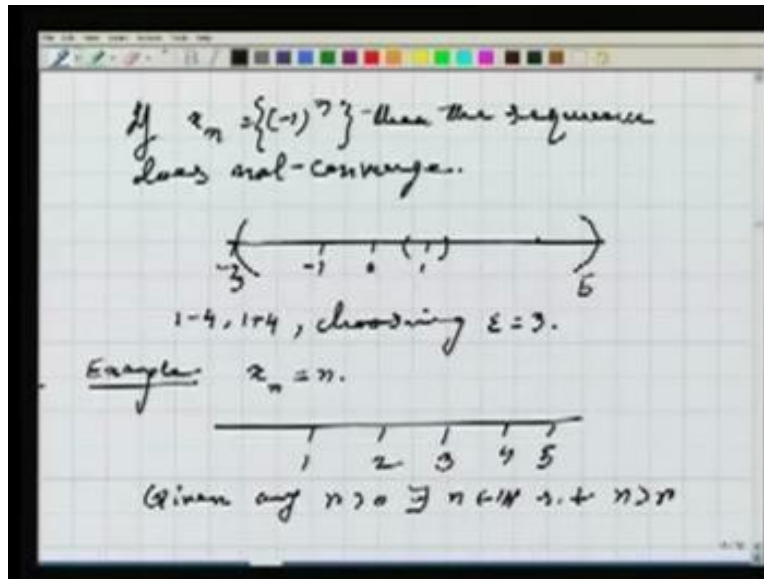 If x_n = {(-1)^n} then the sequence
does not converge.
-3 -1 0 ( 1 ) 5
1-4, 1+4, choosing ε = 3.
Example x_n = n.
1 2 3 4 5
Given any r > 0 ∃ n ∈ IN s.t n > r